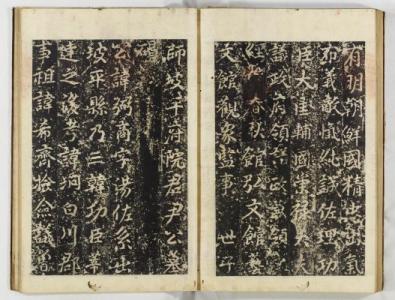 有明朝鮮國精忠出氣
布義敵愾純誠佐理功
臣大匡輔國崇祿大夫
議政府領議政兼領
經筵春秋館弘文館藝
文館觀象監事 世子
師坡平府院君尹公墓
碑
公諱弼商字湯佐系出
坡平縣乃三韓功臣莘
達之後考諱坰白川郡
事祖諱希齊